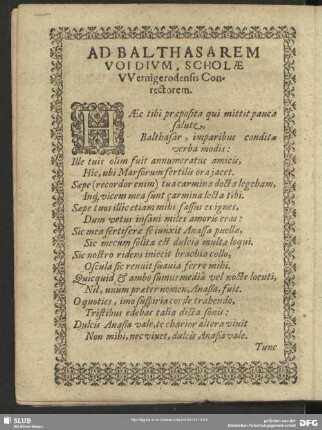 AD BALTHASAREM
VOIDIVM, SCHOLÆ
VVernigerodensis Con-
rectorem.
HÆc tibi præposita qui mittit pauca
salute,
Balthasar, imparibus condita
verba modis:
Ille tuis olim fuit annumeratus amicis,
Hic, ubi Marsorum fertilis ora jacet.
Sepe (recordor enim) tua carmina docta legebam,
Inq́ vicem mea sunt carmina lecta tibi.
Sepe tuos illic etiam mihi fassus es ignes,
Dum vetus insani miles amoris eras:
Sic mea fertiferæ se iunxit Anassa puellæ,
Sic mecum solita est dulcia multa loqui.
Sic nostro ridens iniecit brachia collo,
Oscula sic renuit suavia ferre mihi.
Quicquid & ambo sumus mediâ vel nocte locuti,
Nil, unum præter nomen, Anassa, fuit.
O quoties, imo suspiria corde trahendo,
Tristibus edebas talia dicta sonis:
Dulcis Anassa vale, te charior altera vivit
Non mihi, nec vivet, dulcis Anassa vale.
Tunc
SLUB
Wir führen Wissen.
gefördert von der
Deutschen Forschungsgemeinschaft
DFG